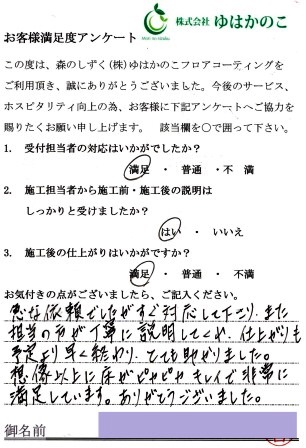 Mori-no-sizuku
株式会社 ゆはかのこ
お客様満足度アンケート
この度は、森のしずく(株)ゆはかのこフロアコーティングを
ご利用頂き、誠にありがとうございました。今後のサービス、
ホスピタリティ向上の為、お客様に下記アンケートへご協力を
賜りたくお願い申し上げます。 該当欄を○で囲って下さい。
1. 受付担当者の対応はいかがでしたか?
満足 ・ 普通 ・不 満
2. 施工担当者から施工前・施工後の説明は
しっかりと受けましたか?
はい ・ いいえ
3. 施工後の仕上がりはいかがですか?
満足 ・ 普通 ・ 不満
お気付きの点がございましたら、ご記入ください。
急な依頼でしたがすぐ対応して下さり、また
担当の方が丁寧に説明してくれ、仕上がりも
予定より早く終わり、とても助かりました。
想像以上に床がピカピカ キレイで非常に
満足しています。ありがとうございました。
御名前